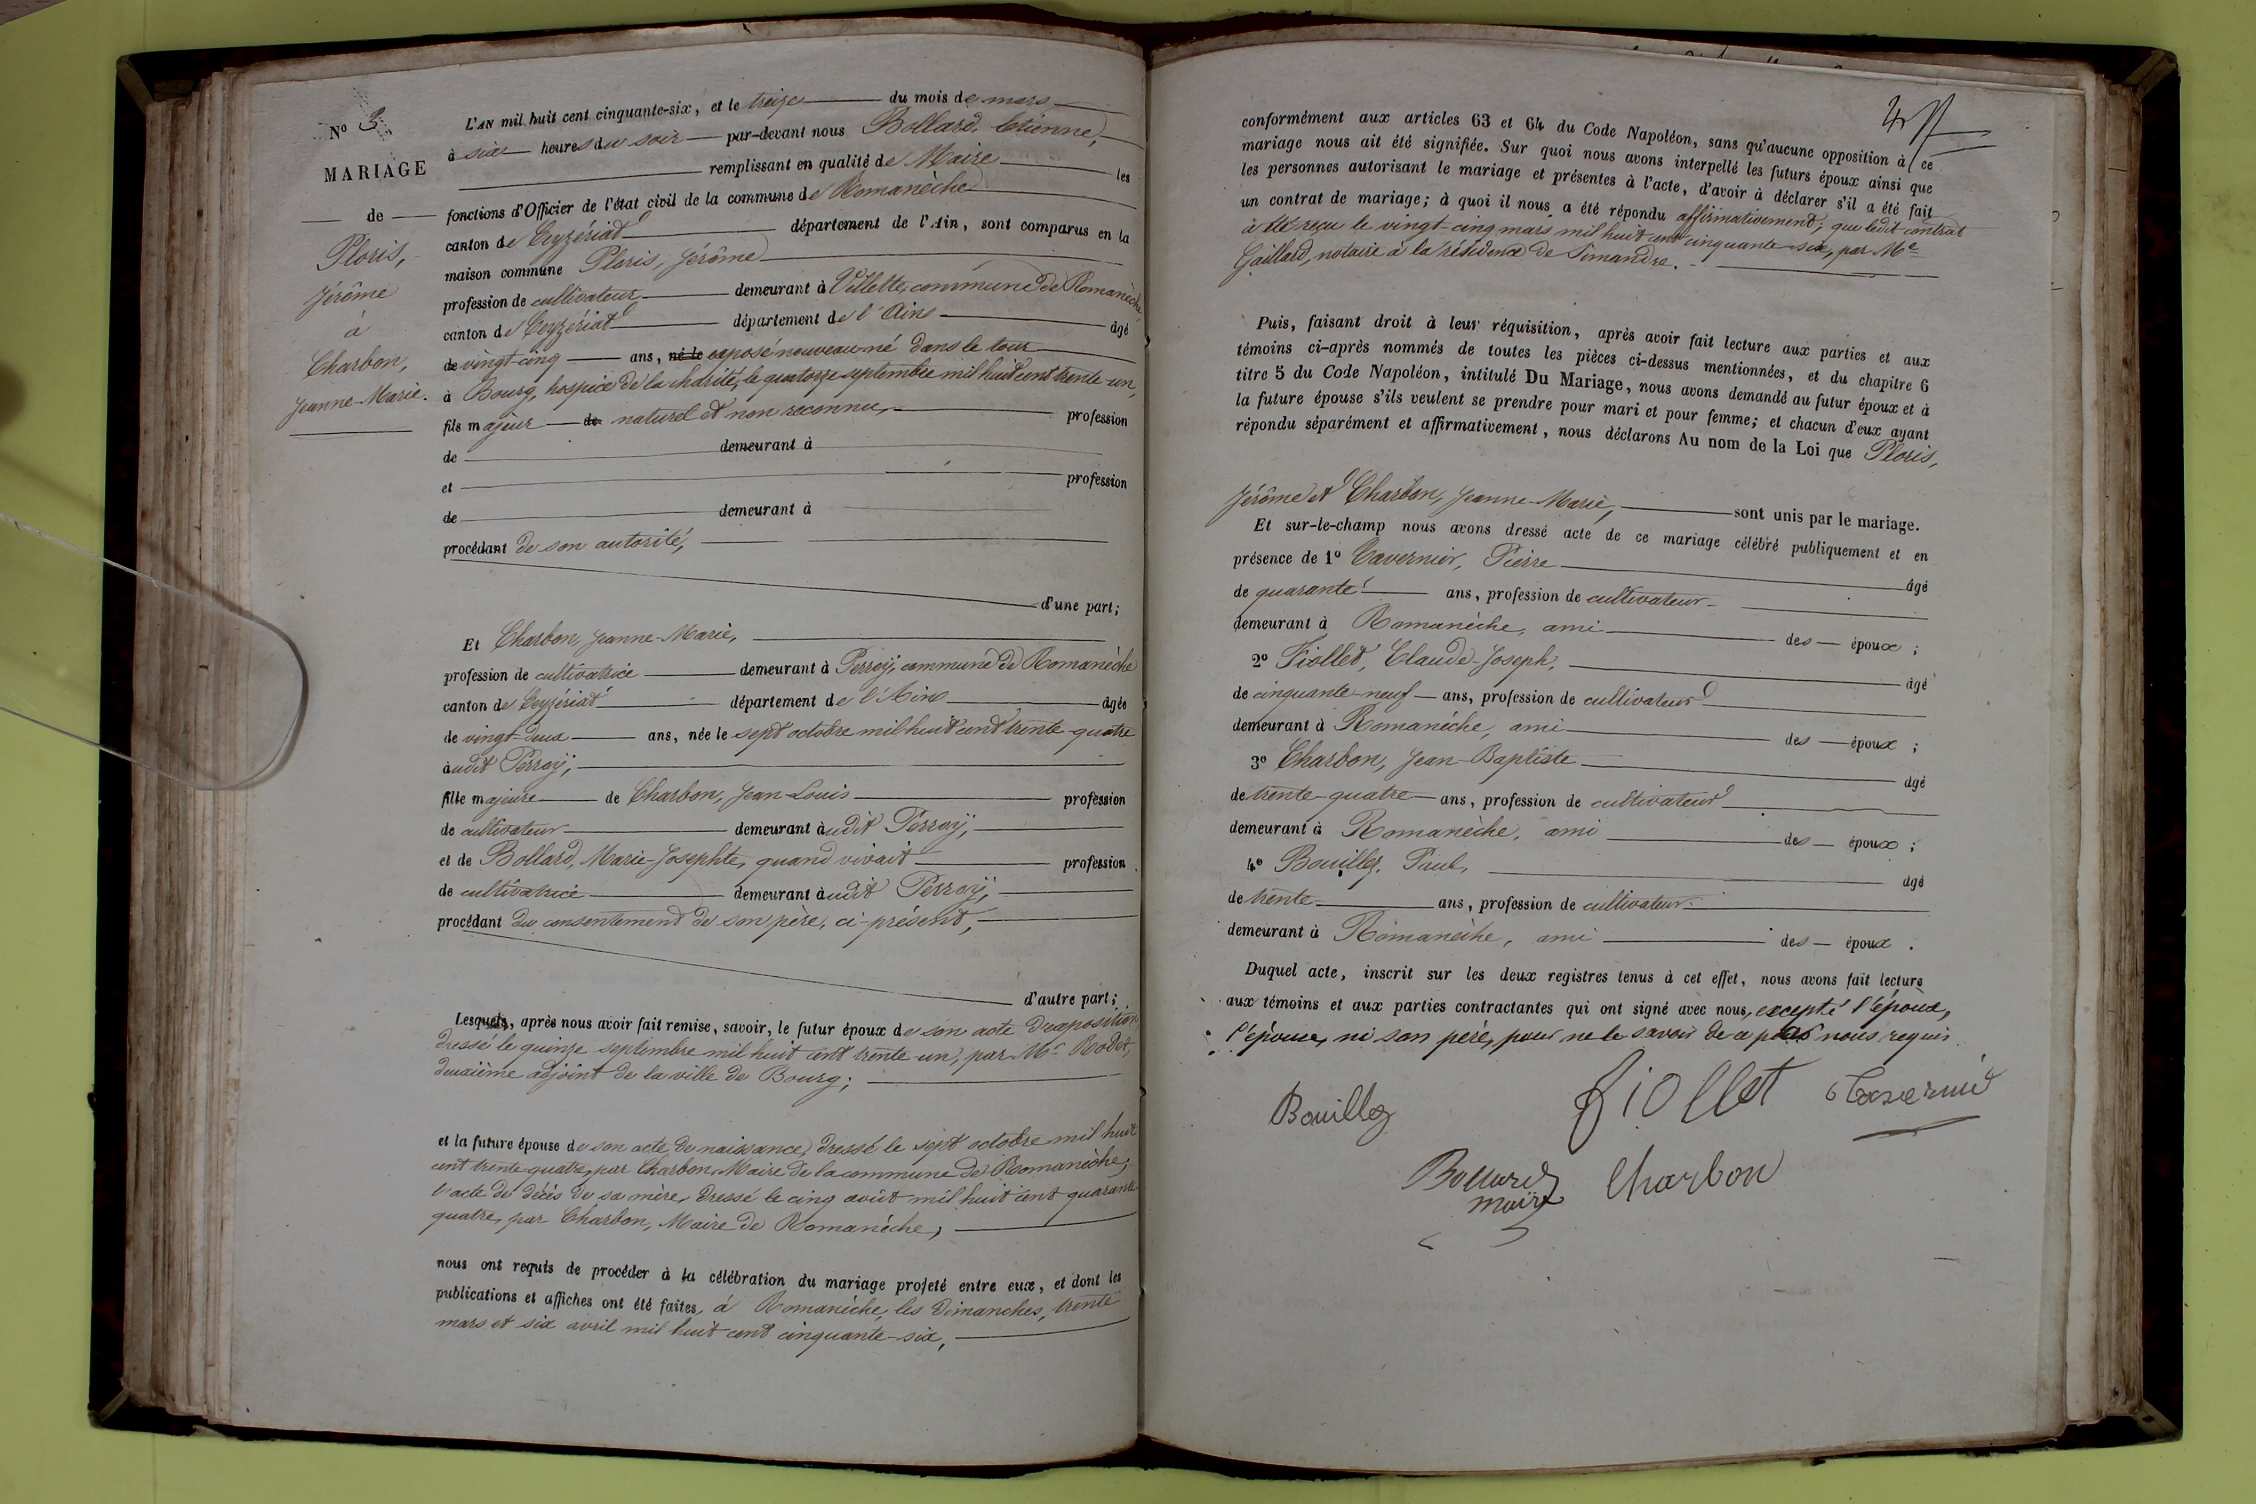 No 3
MARIAGE
de
Ploris,
Jérôme
à
Charbon,
Jeanne-Marie.
L'AN mil huit cent cinquante-six, et le treize du mois de mars
à six heures du soir par-devant nous Bollard, Etienne,
remplissant en qualité de Maire les
fonctions d'Officier de l'état civil de la commune de Romanèche
canton de Ceyzériat département de l'Ain, sont comparus en la
maison commune Ploris, Jérôme
profession de cultivateur demeurant à Villette, commune de Romanèche,
canton de Ceyzériat département de l'Ain âgé
de vingt-cinq ans, né le exposé nouveau-né dans le tour
à Bourg, hospice de la charité, le quatorze septembre mil huit cent trente-un,
fils majeur de naturel et non reconnu, profession
de demeurant à
et profession
de demeurant à
procédant de son autorité,
d'une part;
Et Charbon, Jeanne-Marie,
profession de cultivatrice demeurant à Perroÿ, commune de Romanèche
canton de Ceyzériat département de l'Ain âgée
de vingt-deux ans, née le sept octobre mil huit cent trente-quatre
audit Perroÿ,
fille majeure de Charbon, Jean-Louis profession
de cultivateur demeurant audit Perroÿ,
et de Bollard, Marie-Josephte, quand vivait profession
de cultivatrice demeurant audit Perroÿ,
procédant du consentement de son père, ci-présent,
d'autre part;
Lesquels, après nous avoir fait remise, savoir, le futur époux de son acte d'exposition
dressé le quinze septembre mil huit cent trente-un, par Mr Rodet,
deuxième adjoint de la ville de Bourg;
et la future épouse de son acte de naissance, dressé le sept octobre mil huit
cent trente-quatre, par Charbon, Maire de la commune de Romanèche;
l'acte de décès de sa mère, dressé le cinq août mil huit cent quarante
quatre, par Charbon, Maire de Romanèche,
nous ont requis de procéder à la célébration du mariage projeté entre eux, et dont les
publications et affiches ont été faites, à Romanèche, les dimanches, trente
mars et six avril mil huit cent cinquante-six,
conformément aux articles 63 et 64 du Code Napoléon, sans qu'aucune opposition à ce
mariage nous ait été signifiée. Sur quoi nous avons interpellé les futurs époux ainsi que
les personnes autorisant le mariage et présentes à l'acte, d'avoir à déclarer s'il a été fait
un contrat de mariage; à quoi il nous a été répondu affirmativement, que ledit contrat
a été reçu le vingt-cinq mars mil huit cent cinquante-six, par Me
Gaillard, notaire à la résidence de Simandre.
Puis, faisant droit à leur réquisition, après avoir fait lecture aux parties et aux
témoins ci-après nommés de toutes les pièces ci-dessus mentionnées, et du chapitre 6
titre 5 du Code Napoléon, intitulé Du Mariage, nous avons demandé au futur époux et à
la future épouse s'ils veulent se prendre pour mari et pour femme; et chacun d'eux ayant
répondu séparément et affirmativement, nous déclarons Au nom de la Loi que Ploris,
Jérôme et Charbon, Jeanne-Marie, sont unis par le mariage.
Et sur-le-champ nous avons dressé acte de ce mariage célébré publiquement et en
présence de 1o Tavernier, Pierre âgé
de quarante ans, profession de cultivateur
demeurant à Romanèche, ami des époux;
2o Fiollet, Claude-Joseph, âgé
de cinquante-neuf ans, profession de cultivateur
demeurant à Romanèche, ami des époux;
3o Charbon, Jean-Baptiste âgé
de trente-quatre ans, profession de cultivateur
demeurant à Romanèche, ami des époux;
4o Bouilloz, Paul, âgé
de trente ans, profession de cultivateur
demeurant à Romanèche, ami des époux.
Duquel acte, inscrit sur les deux registres tenus à cet effet, nous avons fait lecture
aux témoins et aux parties contractantes qui ont signé avec nous, excepté l'époux,
l'épouse, ni son père, pour ne le savoir de ce par nous requis
Bouilloz Fiollet Tavernié
Bollard Charbon
maire